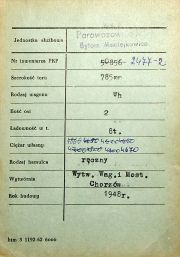 Jednostka służbowa Parowozow
Bytom Maciejkowice
Nr inwentarza PKP 50856 2477-2
Szerokość toru 785mm
Rodzaj wagonu Wh
Ilość osi 2
Ładowność w t. 8t.
Ciężar własny
4670
Rodzaj hamulca ręczny
Wytwórnia Wytw. Wag.i Most.
Chorzów
Rok budowy 1948r.